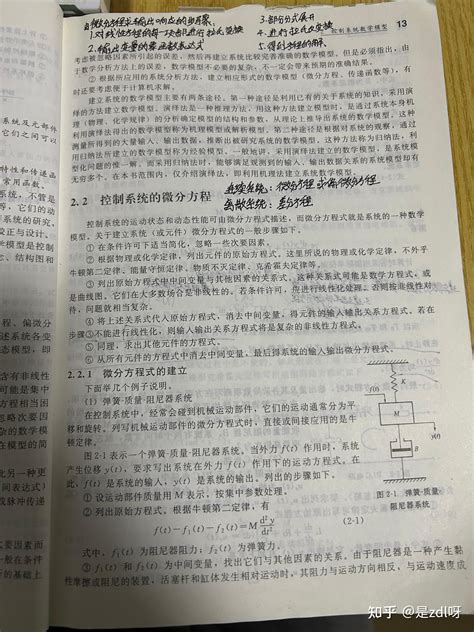 由微分方程求输出响应的步骤
1.对线性方程的每一项都进行拉氏变换
2.输出变量的象函数表达式
3.部分分式展开
4.进行拉氏反变换
控制系统数学模型 13
考虑被忽略因素所引起的误差,然后再建立系统比较完善准确的数学模型。但是必须指出,由
于数学分析方法上的误差,数学模型不必要的复杂,不一定会带来预期的准确结果。
② 根据所应用的系统分析方法,建立相应形式的数学模型(微分方程、传递函数等),有
时还要考虑便于计算求解。
建立系统的数学模型主要有两条途径。第一种途径是利用已有的关于系统的知识,采用演
绎的方法建立数学模型。演绎法是一种推理方法,用这种方法建立模型时,是通过系统本身机
理(物理、化学规律)的分析确定模型的结构和参数,从理论上推导出系统的数学模型。这种
利用演绎法得出的数学模型称为机理模型或解析模型。第二种途径是根据对系统的观察,通过
测量所得到的大量输入、输出数据,推断出被研究系统的数学模型。这种方法称为归纳法,利
用归纳法所建立的数学模型称为经验模型。一般地讲,采用演绎法建立的数学模型,是系统模
型化问题的惟一解。而采用归纳法时,能够满足观测到的输入、输出数据关系的系统模型却有
无穷多个。在本书范围内,仅介绍演绎法,且重点是机理建模。
连续系统:微分方程
离散系统:差分方程
2.2 控制系统的微分方程
控制系统的运动状态和动态性能可由微分方程式描述,而微分方程式就是系统的一种数学
模型。关于建立系统(或元件)微分方程式的一般步骤如下。
① 在条件许可下适当简化,忽略一些次要因素。
② 根据物理或化学定律,列出元件的原始方程式。这里所说的物理或化学定律,不外乎
牛顿第二定律、能量守恒定律、物质不灭定律、克希霍夫定律等。
③ 列出原始方程式中中间变量与其他因素的关系式。这种关系式可能是数学方程式,或
是曲线图。它们在大多数场合是非线性的。若条件许可,应进行线性化处理。否则按非线性对
待,问题就相当复杂。
④ 将上述关系式代入原始方程式,消去中间变量,得元件的输入输出关系方程式。若在
步骤③不能进行线性化,则输入输出关系方程式将是复杂的非线性方程式。
⑤ 同理,求出其他元件的方程式。
⑥ 从所有元件的方程式中消去中间变量,最后得系统的输入输出微分方程式。
2.2.1 微分方程式的建立
下面举几个例子说明。
(1) 弹簧-质量-阻尼器系统
在控制系统中,经常会碰到机械运动部件,它们的运动通常分为平
移和旋转。列写机械运动部件的微分方程式时,直接或间接应用的是牛
顿定律。
图2-1表示一个弹簧-质量-阻尼器系统。当外力 f(t) 作用时,系统
产生位移 y(t),要求写出系统在外力 f(t) 作用下的运动方程式。在
此,f(t) 是系统的输入,y(t) 是系统的输出。列出的步骤如下。
① 设运动部件质量用 M 表示,按集中参数处理。
② 列出原始方程式。根据牛顿第二定律,有
f(t)-f₁(t)-f₂(t)=M d²y/dt² (2-1)
式中,f₁(t) 为阻尼器阻力;f₂(t) 为弹簧力。
③ f₁(t) 和 f₂(t) 为中间变量,找出它们与其他因素的关系。由于阻尼器是一种产生黏
性摩擦或阻尼的装置,活塞杆和缸体发生相对运动时,其阻力与运动方向相反,与运动速度成
K
f(t)
M
y(t)
B
图 2-1 弹簧-质量-
阻尼器系统
知乎 @是zdl呀